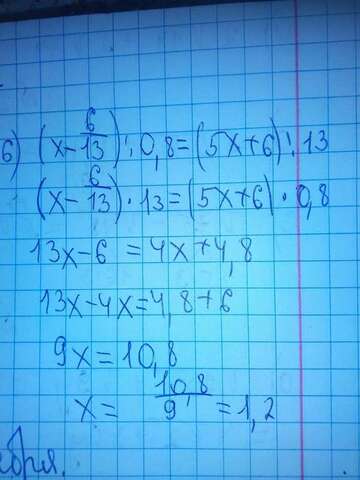 б) (x-6/13):0,8=(5x+6):13
(x-6/13)·13=(5x+6)·0,8
13x-6=4x+4,8
13x-4x=4,8+6
9x=10,8
x=10,8/9=1,2